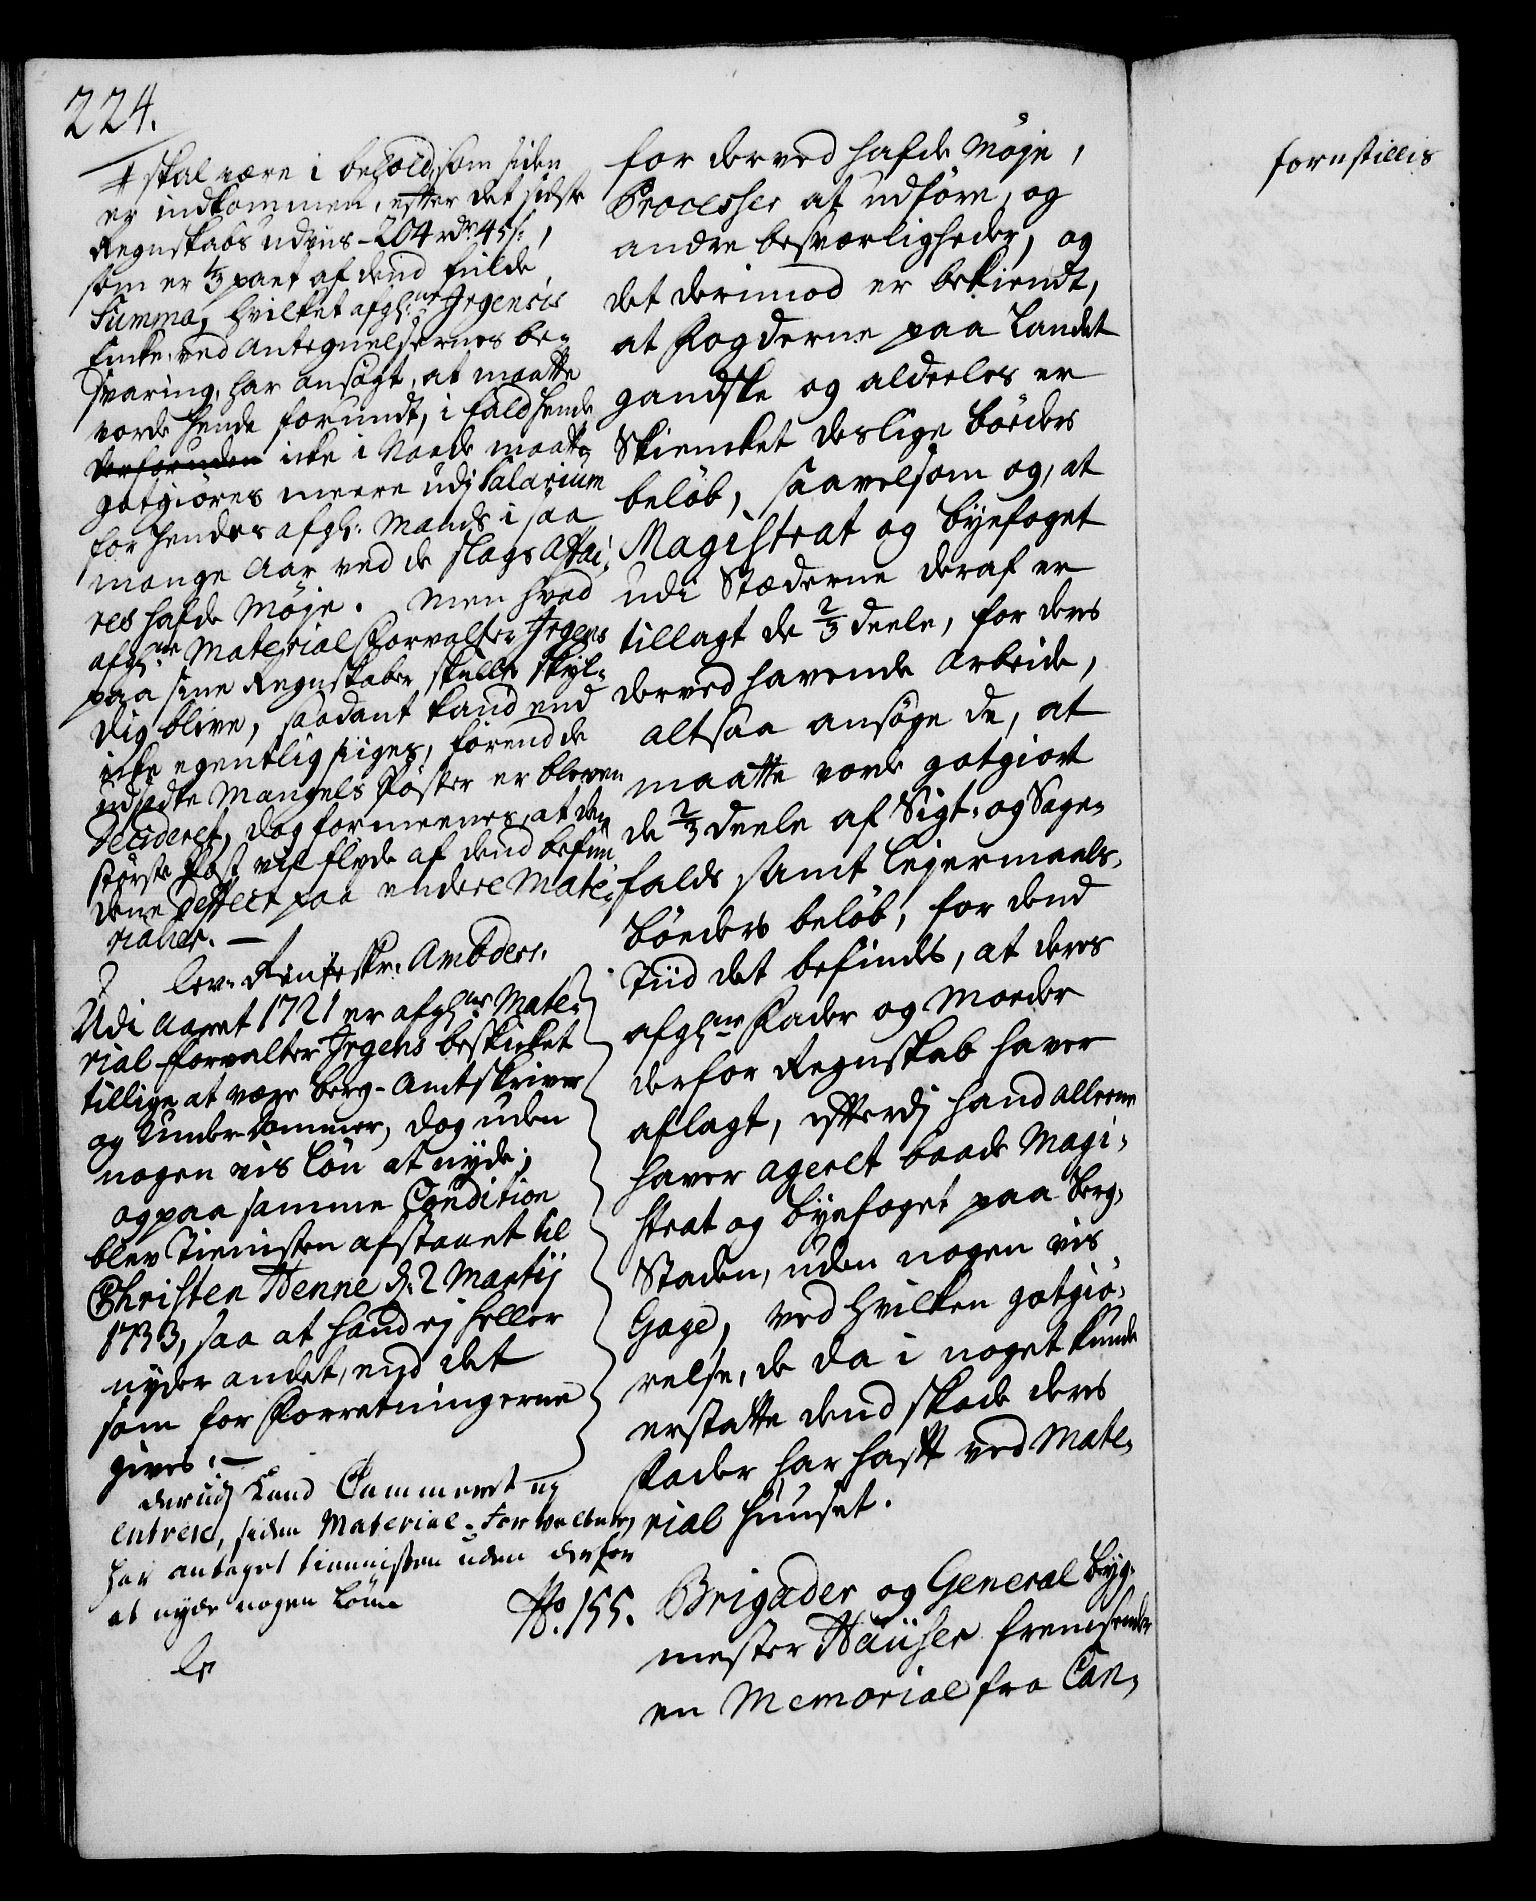 224.
# skal være i behold, som siden
er indkommen, efter det sidste
Regnskabs udviis - 204 rdr 45 s:,
som er 1/3 part af dend fulde
Summa, hvilket afg: Irgensis
Encke, ved Antegnelsernes be-
svaring, har ansögt, at maatte
vorde hende forundt, i fald hende
derforuden icke i Naade maatte
gotgiöres meere udj Salarium
for hendes afg: Mands i saa
mange Aar ved de slags Affai-
res hafde Möje. Men hvad
afgne Material Forvalter Irgens
paa sine Regnskaber skulle skyl-
dig blive, saadant kand end
icke egentlig siiges, förend de
udsadte Mangels Poster er bleven
Decideret, dog formeenes, at den
störste Post vil flyde af dend befun-
dene Deffect paa endeel Mate-
rialier. —
lev: Renteskr: Amböers.
Udi Aaret 1721 er afgne Mate-
rial-forvalter Irgens beskicket
tillige at være Berg-Amtskriver
og Under dommer, dog uden
nogen vis Lön at nyde;
og paa samme Condition
blev Tienisten afstaaet til
Christen Henne d. 2 Martij
1733, saa at hand ej heller
nyder andet, end det
som for Forretningerne
gives. —
derudj Kand Cammeret ej
entrere, siden Material-Forvalteren
har antaget tiennisten uden derfor
at nyde nogen Lönn
for derved hafde Möje,
Processer at udföre, og
andre besværligheder, og
det derimod er bekiendt,
at Fogderne paa Landet
gandske og aldeeles er
Skiencket deslige böeders
belöb, saavelsom og, at
Magistrat og Byefoget
udi Stæderne deraf er
tillagt de 2/3 deele, for deres
derved havende Arbeide,
altsaa ansöge de, at
maatte vorde gotgiort
de 2/3 deele af Sigt- og Sage-
falds samt Lejermaals-
böeders belöb, for dend
Tiid det befindes, at deres
afgne Fader og Moeder
derfor Regnskab haver
aflagt, efterdj hand alleene
haver ageret baade Magi-
strat og Byefoget paa Berg-
Staden, uden nogen vis
Gage, ved hvilken gotgiö-
relse, de da i noget kunde
erstatte dend skade deres
Fader har haft ved Mate-
rial Huuset.
No. 155. Brigader og General Byg-
mester Häuser fremsender
en Memorial fra Can-
forestillis